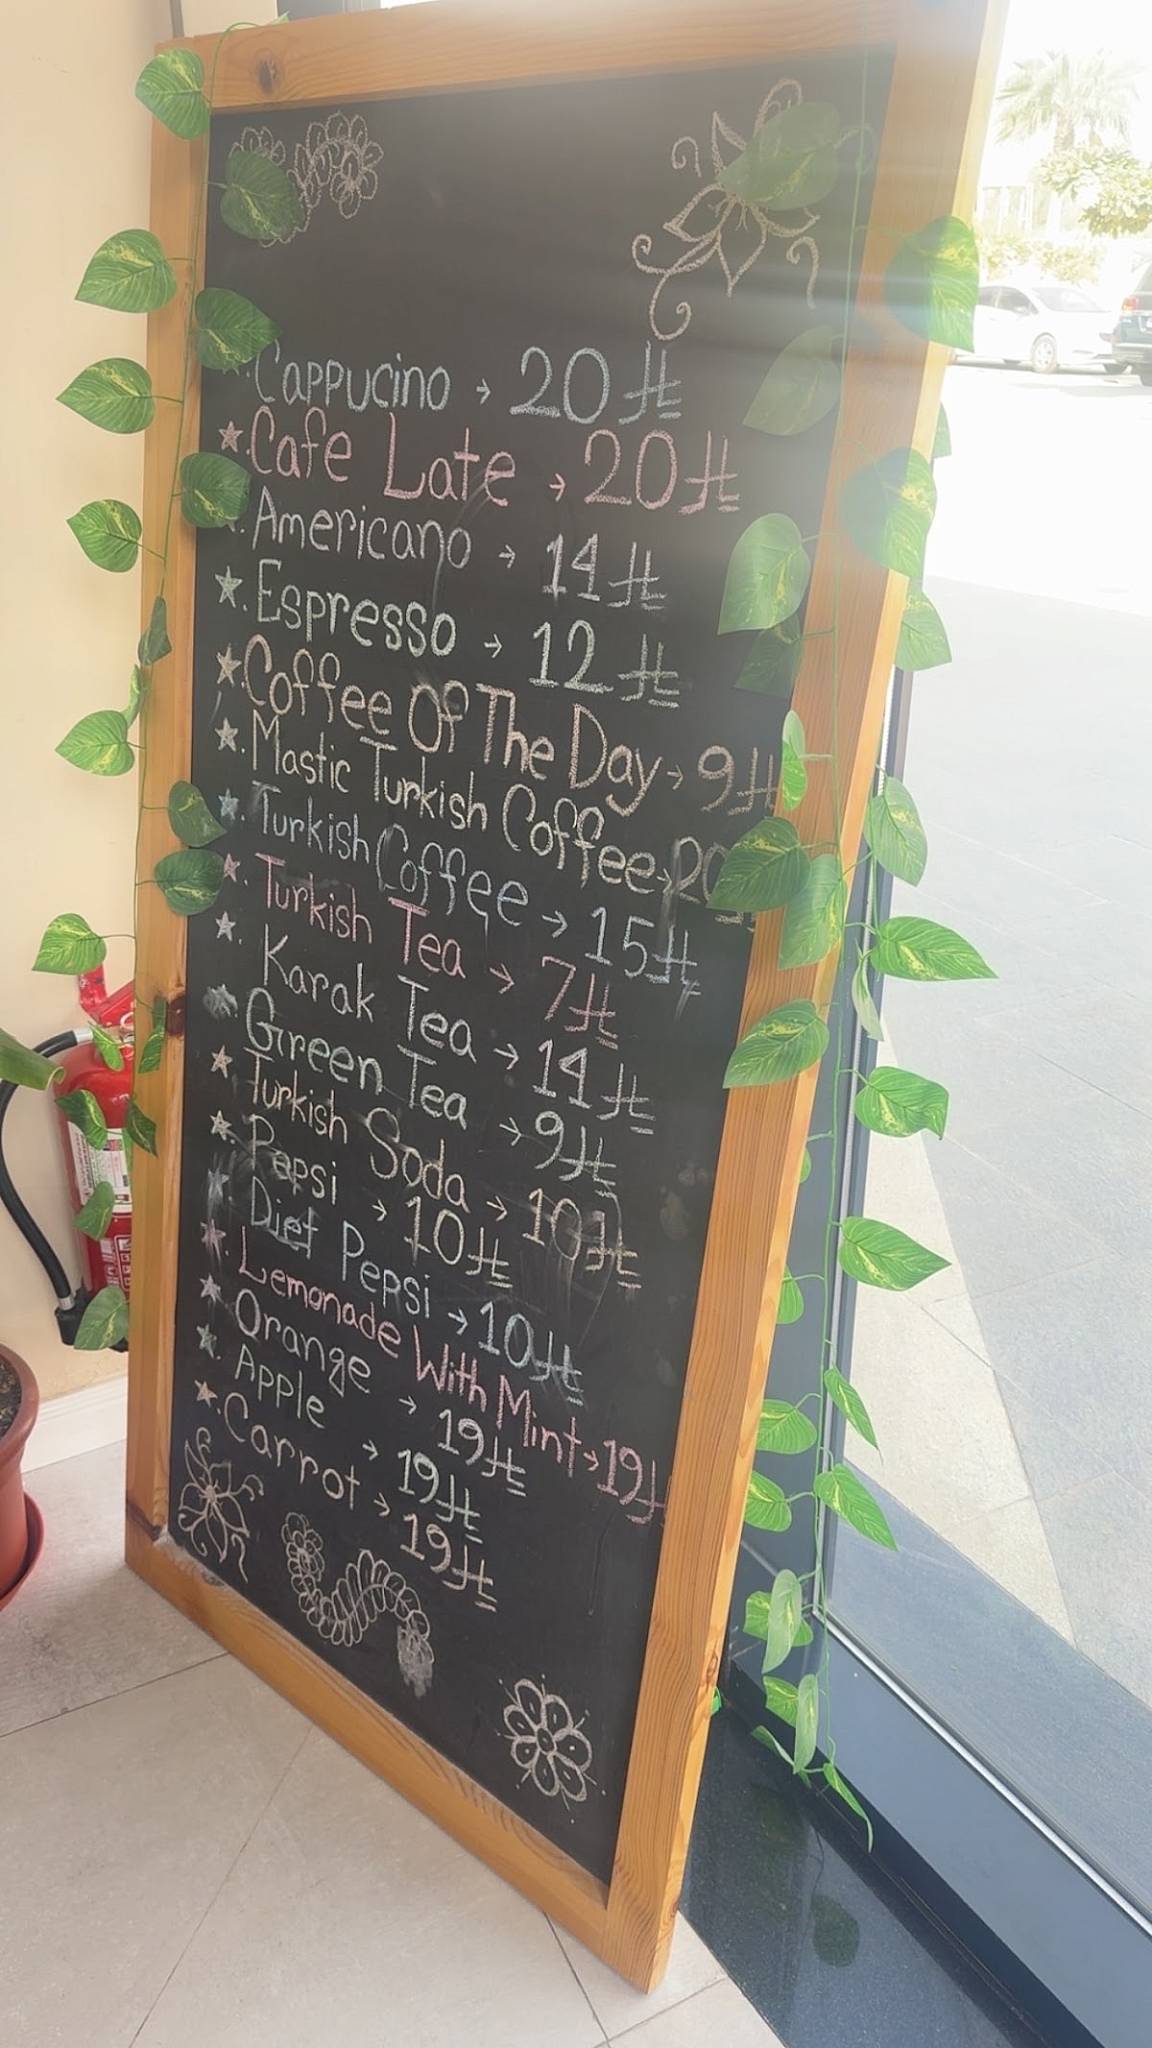 Cappucino → 20 ⃁
★. Cafe Late → 20 ⃁
★. Americano → 14 ⃁
★. Espresso → 12 ⃁
★. Coffee Of The Day → 9 ⃁
★. Mastic Turkish Coffee → 20
★. Turkish Coffee → 15 ⃁
★. Turkish Tea → 7 ⃁
★. Karak Tea → 14 ⃁
★. Green Tea → 9 ⃁
★. Turkish Soda → 10 ⃁
★. Pepsi → 10 ⃁
★. Diet Pepsi → 10 ⃁
★. Lemonade With Mint → 19 ⃁
★. Orange → 19 ⃁
★. Apple → 19 ⃁
★. Carrot → 19 ⃁